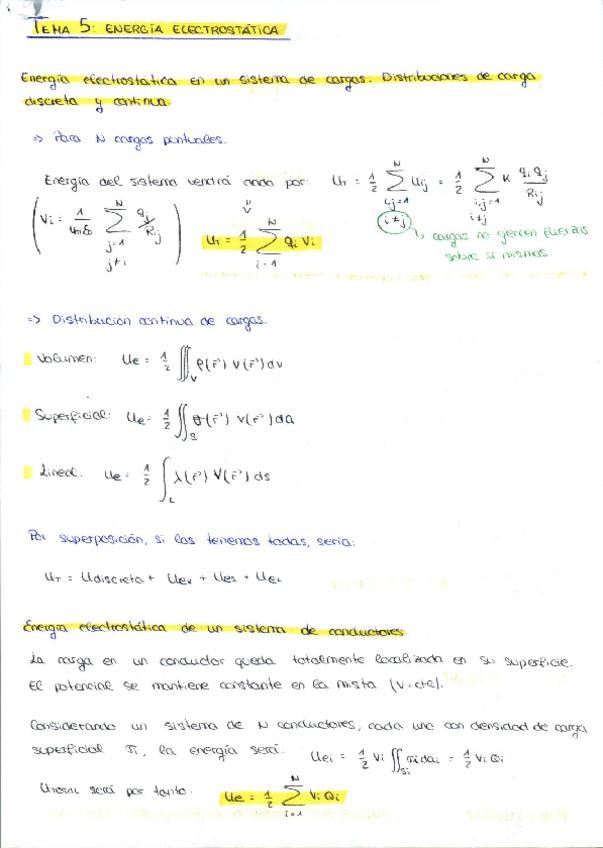 TEMA 5: ENERGÍA ELECTROSTÁTICA
Energía electrostática en un sistema de cargas. Distribuciones de carga
discreta y continua.
=> Para N cargas puntuales.
Energía del sistema vendrá dada por: U_T = 1/2 Σ_{i,j=1, i≠j}^{N} U_ij = 1/2 Σ_{i,j=1, i≠j}^{N} K q_i q_j / R_ij
(V_i = 1/(4πε_0) Σ_{j=1, j≠i}^{N} q_j/R_ij) U_T = 1/2 Σ_{i=1}^{N} q_i V_i
↳ cargas no ejercen fuerzas
sobre sí mismas.
=> Distribución continua de cargas.
Volumen: U_e = 1/2 ∭_V ρ(r⃗) V(r⃗) dv
Superficial: U_e = 1/2 ∬_S σ(r⃗) V(r⃗) da
Lineal: U_e = 1/2 ∫_L λ(r⃗) V(r⃗) ds
Por superposición, si las tenemos todas, sería:
U_T = U_discreta + U_ev + U_es + U_eL
Energía electrostática de un sistema de conductores
La carga en un conductor queda totalmente localizada en su superficie.
El potencial se mantiene constante en la mista (V=cte).
Considerando un sistema de N conductores, cada uno con densidad de carga
superficial σ_i, la energía será: U_ei = 1/2 V_i ∬_{Si} σ_i da_i = 1/2 V_i Q_i
U_TOTAL será por tanto: U_e = 1/2 Σ_{i=1}^{N} V_i Q_i